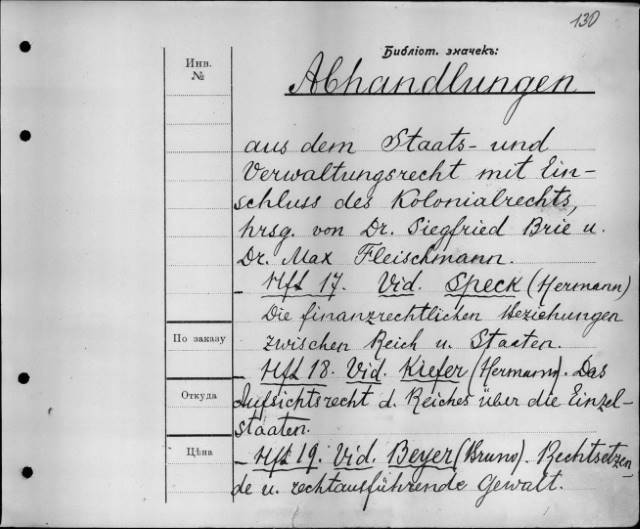 130
Библіот. значекъ:
Инв.
№
Abhandlungen
aus dem Staats- und
Verwaltungsrecht mit Ein-
schluss des Kolonialrechts,
hrsg. von Dr. Siegfried Brie u.
Dr. Max Fleischmann.
- Hft 17. Vid. Speck (Hermann)
Die finanzrechtlichen Beziehungen
По заказу
zwischen Reich u. Staaten.
- Hft 18. Vid. Kiefer (Hermann). Das
Откуда
Aufsichtsrecht d. Reiches über die Einzel-
staaten.
Цѣна
- Hft 19. Vid. Beyer (Bruno). Rechtsetzen-
de u. rechtausführende Gewalt.